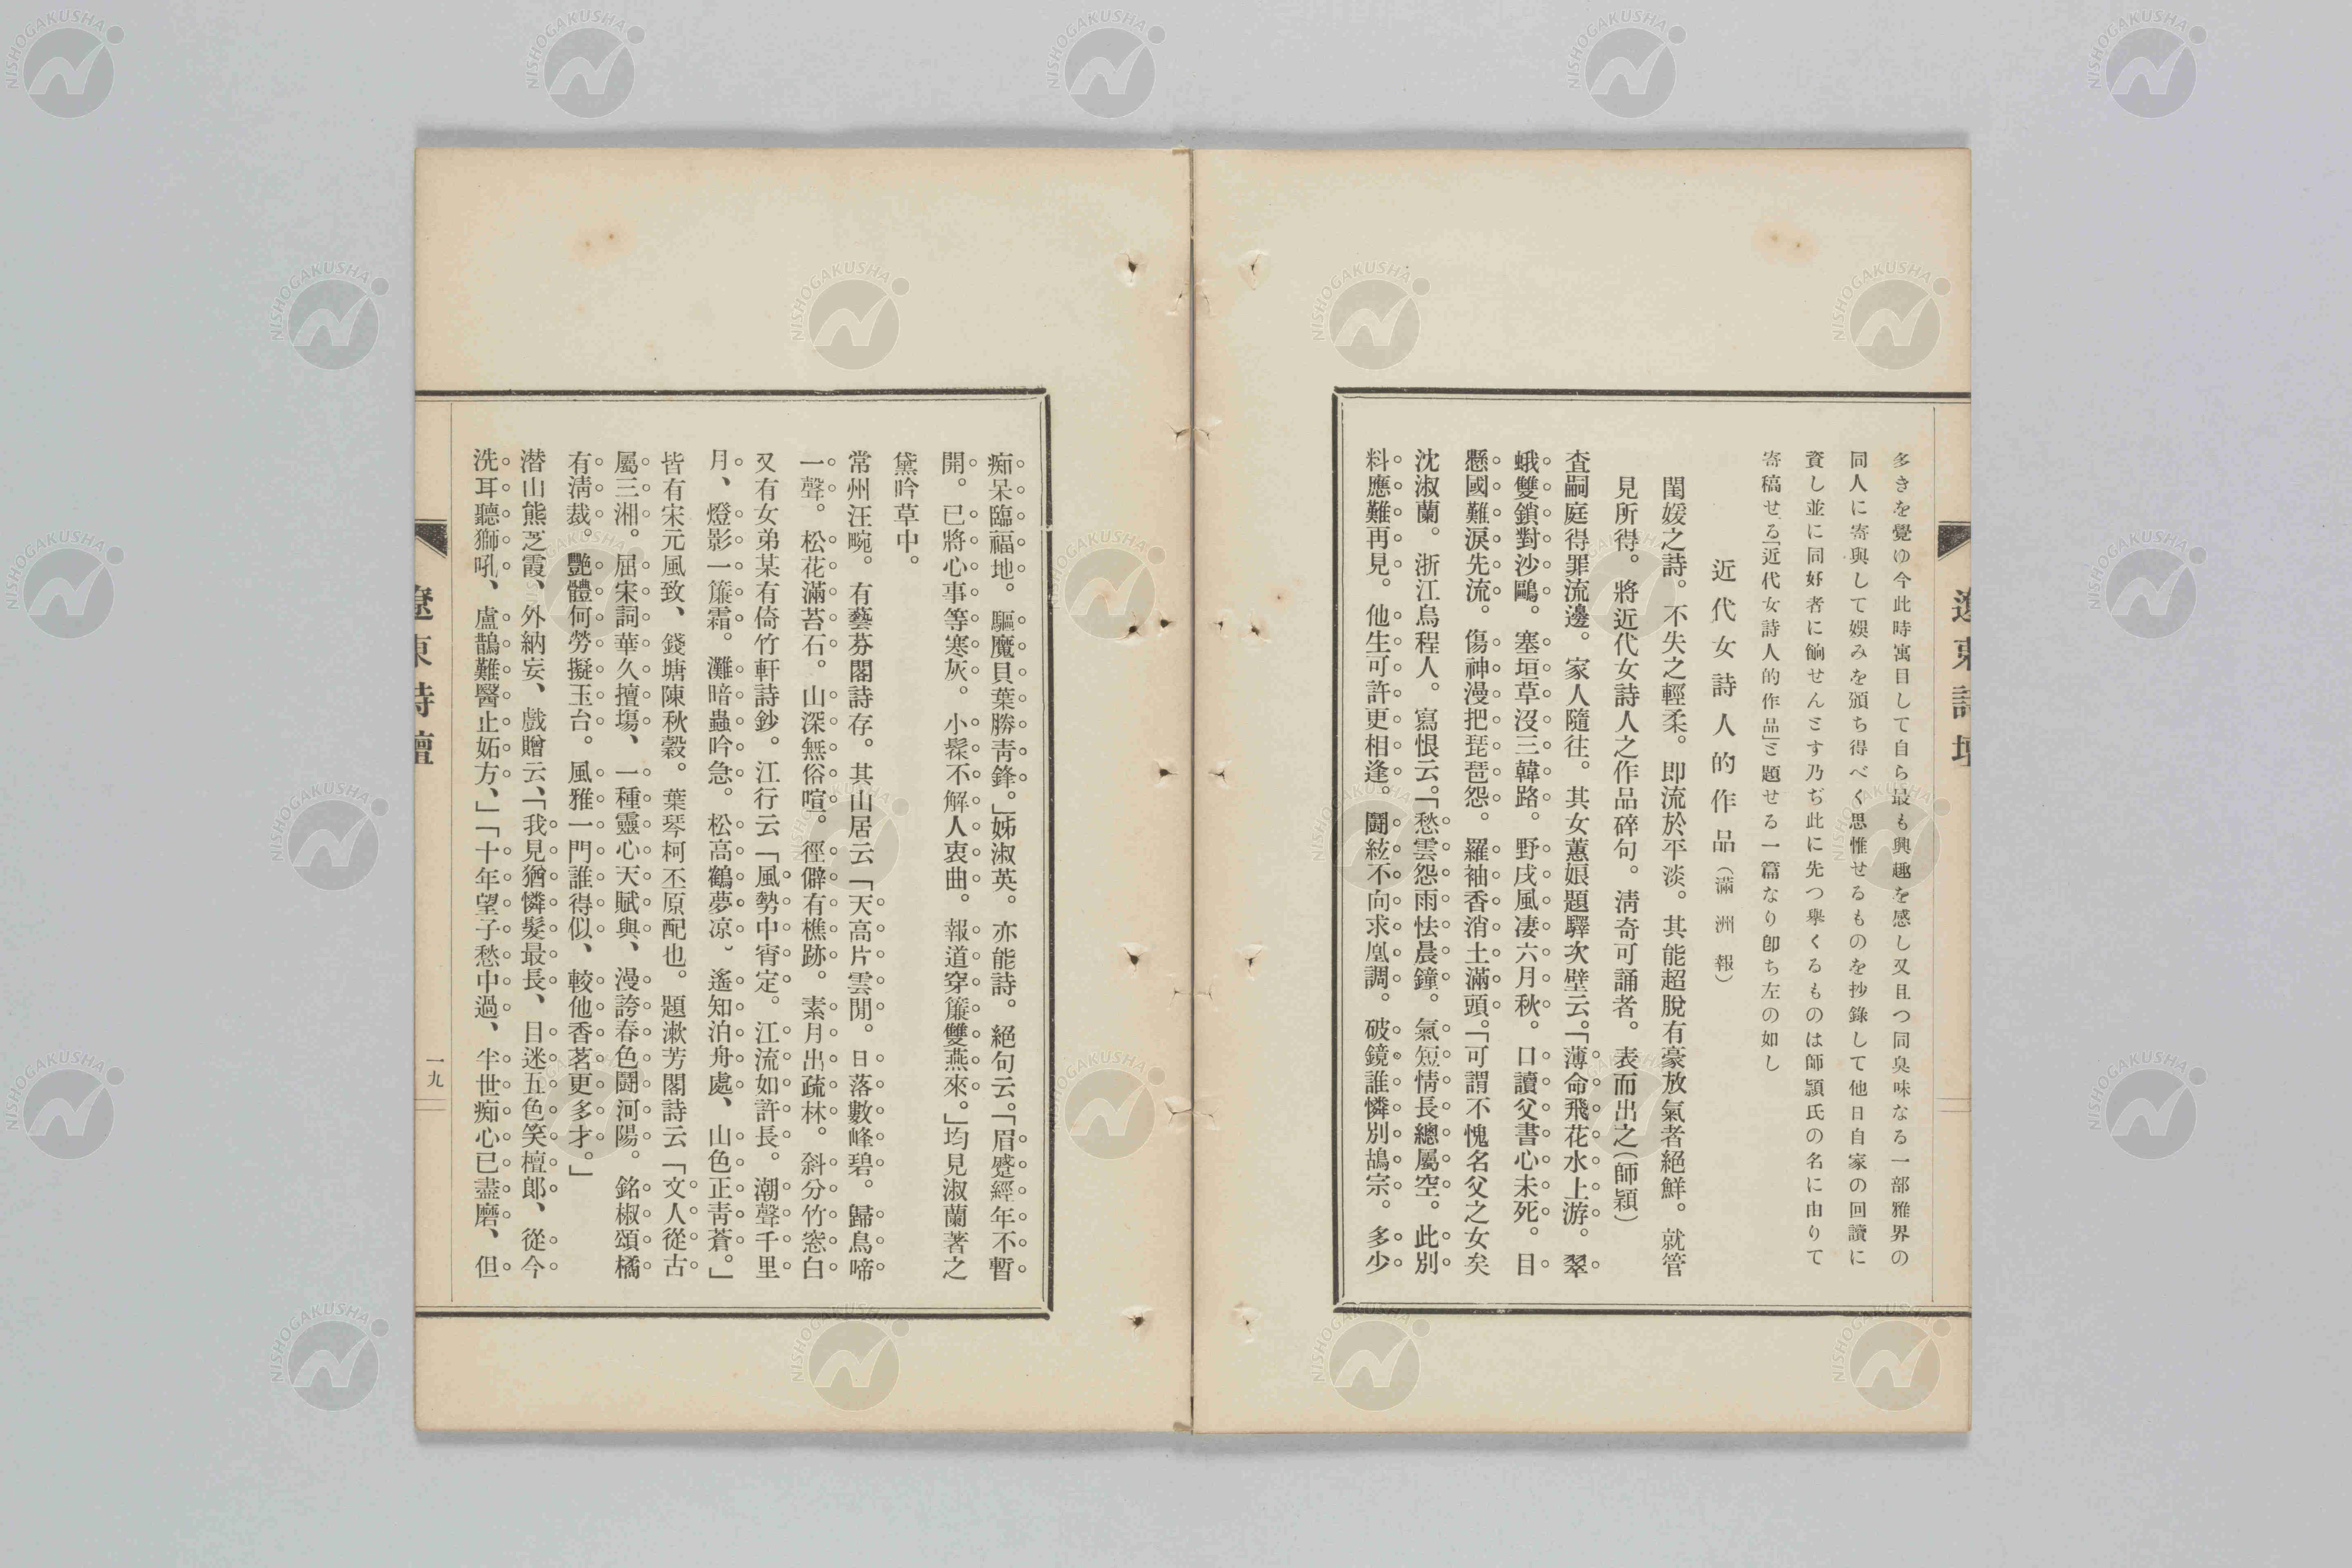 多きを覺ゆ今此時寓目して自ら最も興趣を感し又且つ同臭味なる一部雅界の
同人に寄與して娯みを頒ち得べく思惟せるものを抄錄して他日自家の回讀に
資し並に同好者に餉せんとす乃ぢ此に先つ擧くるものは師頴氏の名に由りて
寄稿せる「近代女詩人的作品」と題せる一篇なり卽ち左の如し
近代女詩人的作品（滿洲報）
閨媛之詩。不失之輕柔。即流於平淡。其能超脫有豪放氣者絕鮮。就管
見所得。將近代女詩人之作品碎句。淸奇可誦者。表而出之（師穎）
査嗣庭得罪流邊。家人隨往。其女蕙娘題驛次壁云。「薄命飛花水上游。翠
蛾雙鎖對沙鷗。塞垣草沒三韓路。野戍風凄六月秋。口讀父書心未死。目
懸國難淚先流。傷神漫把琵琶怨。羅袖香消土滿頭。「可謂不愧名父之女矣
沈淑蘭。浙江烏程人。寫恨云。「愁雲怨雨怯晨鐘。氣短情長總屬空。此別
料應難再見。他生可許更相逢。鬪絃不向求凰調。破鏡誰憐別鴣宗。多少
痴呆臨福地。驅魔貝葉勝靑鋒。」姊淑英。亦能詩。絕句云。「眉蹙經年不暫
開。已將心事等寒灰。小鬟不解人衷曲。報道穿簾雙燕來。」均見淑蘭著之
黛吟草中。
常州汪畹。有藝芬閣詩存。其山居云「天高片雲閒。日落數峰碧。歸鳥啼
一聲。松花滿苔石。山深無俗喧。徑僻有樵跡。素月出疏林。斜分竹窓白
又有女弟某有倚竹軒詩鈔。江行云「風勢中宵定。江流如許長。潮聲千里
月、燈影一簾霜。灘暗蟲吟急。松高鶴夢凉、遙知泊舟處、山色正靑蒼。」
皆有宋元風致、錢塘陳秋穀。葉琴柯丕原配也。題漱芳閣詩云「文人從古
屬三湘。屈宋詞華久擅塲、一種靈心天賦與、漫誇春色鬪河陽。銘椒頌橘
有淸裁。艷體何勞擬玉台。風雅一門誰得似、較他香茗更多才。」
潜山熊芝霞、外納妄、戲贈云、「我見猶憐髮最長、目迷五色笑檀郞、從今
洗耳聽獅吼、盧鵲難醫止妬方、」「十年望子愁中過、半世痴心已盡磨、但
一九
遼東詩壇
NISHOGAKUSHA